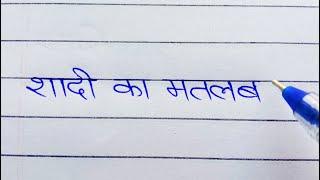 शादी का मतलब